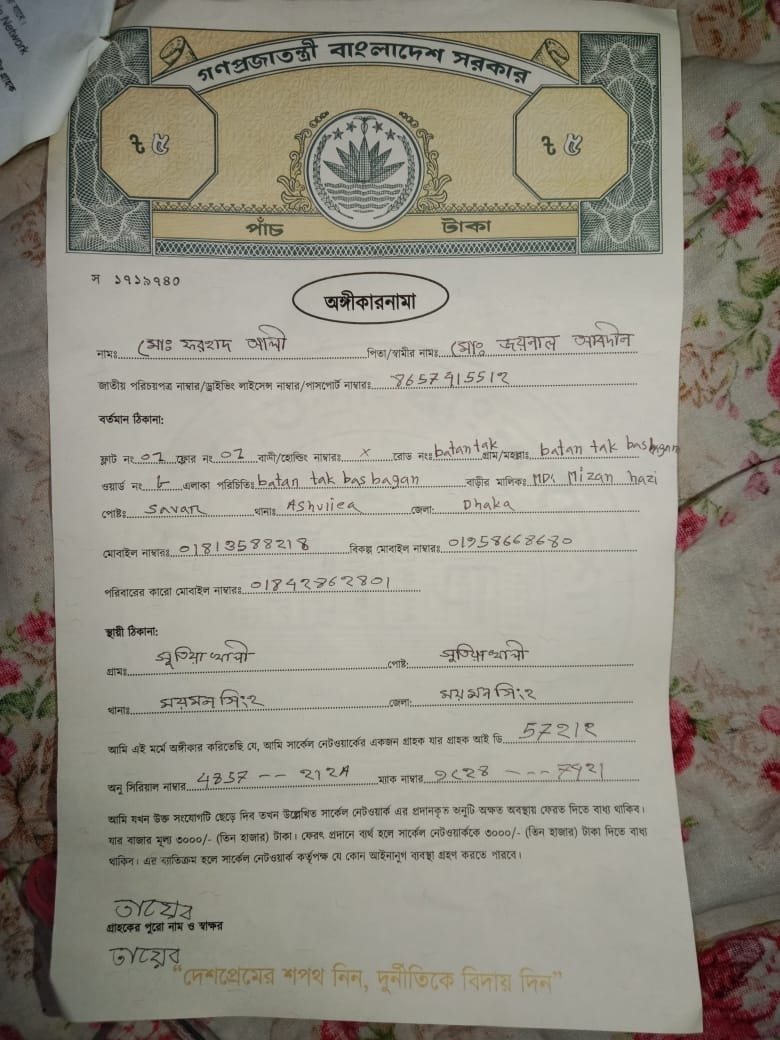 Network
গণপ্রজাতন্ত্রী বাংলাদেশ সরকার
৳ ৫
৳ ৫
পাঁচ টাকা
স ১৭১৯৭৪০
অঙ্গীকারনামা
নামঃ মোঃ ফরহাদ আলী পিতা/স্বামীর নামঃ মোঃ জয়নাল আবদীন
জাতীয় পরিচয়পত্র নাম্বার/ড্রাইভিং লাইসেন্স নাম্বার/পাসপোর্ট নাম্বারঃ
বর্তমান ঠিকানা:
ফ্লাট নং 01 ফ্লোর নং 01 বাসা/হোল্ডিং নাম্বারঃ x রোড নংঃ batan tak গ্রাম/মহল্লাঃ batan tak bas bagan
ওয়ার্ড নং এলাকা পরিচিতিঃ batan tak bas bagan বাড়ীর মালিকঃ MD: Mizan hazi
পোষ্টঃ Savar থানাঃ Ashuliea জেলা: Dhaka
মোবাইল নাম্বারঃ 01813588218 বিকল্প মোবাইল নাম্বারঃ 01958668680
পরিবারের কারো মোবাইল নাম্বারঃ 01842862801
স্থায়ী ঠিকানা:
গ্রামঃ সুতিয়াখালী পোষ্ট: সুতিয়াখালী
থানাঃ ময়মনসিংহ জেলা: ময়মনসিংহ
আমি এই মর্মে অঙ্গীকার করিতেছি যে, আমি সার্কেল নেটওয়ার্কের একজন গ্রাহক যার গ্রাহক আই ডি 5721২
অনু সিরিয়াল নাম্বার 4357 -- 212A ম্যাক নাম্বার
আমি যখন উক্ত সংযোগটি ছেড়ে দিব তখন উল্লেখিত সার্কেল নেটওয়ার্ক এর প্রদানকৃত অনুটি অক্ষত অবস্থায় ফেরত দিতে বাধ্য থাকিব।
যার বাজার মূল্য ৩০০০/- (তিন হাজার) টাকা। ফেরৎ প্রদানে ব্যর্থ হলে সার্কেল নেটওয়ার্ককে ৩০০০/- (তিন হাজার) টাকা দিতে বাধ্য
থাকিব। এর ব্যতিক্রম হলে সার্কেল নেটওয়ার্ক কর্তৃপক্ষ যে কোন আইনানুগ ব্যবস্থা গ্রহণ করতে পারবে।
তায়েব
গ্রাহকের পুরো নাম ও স্বাক্ষর
তায়েব
“দেশপ্রেমের শপথ নিন, দুর্নীতিকে বিদায় দিন”